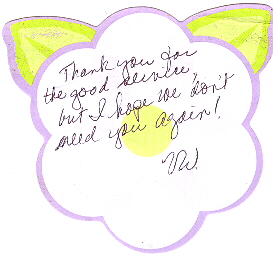 Thank you for
the good service,
but I hope we don't
need you again!